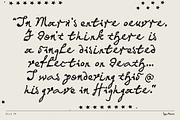 "In Marx's entire oeuvre,
I don't think there is
a single disinterested
reflection on death...
I was pondering this @
his grave in Highgate."